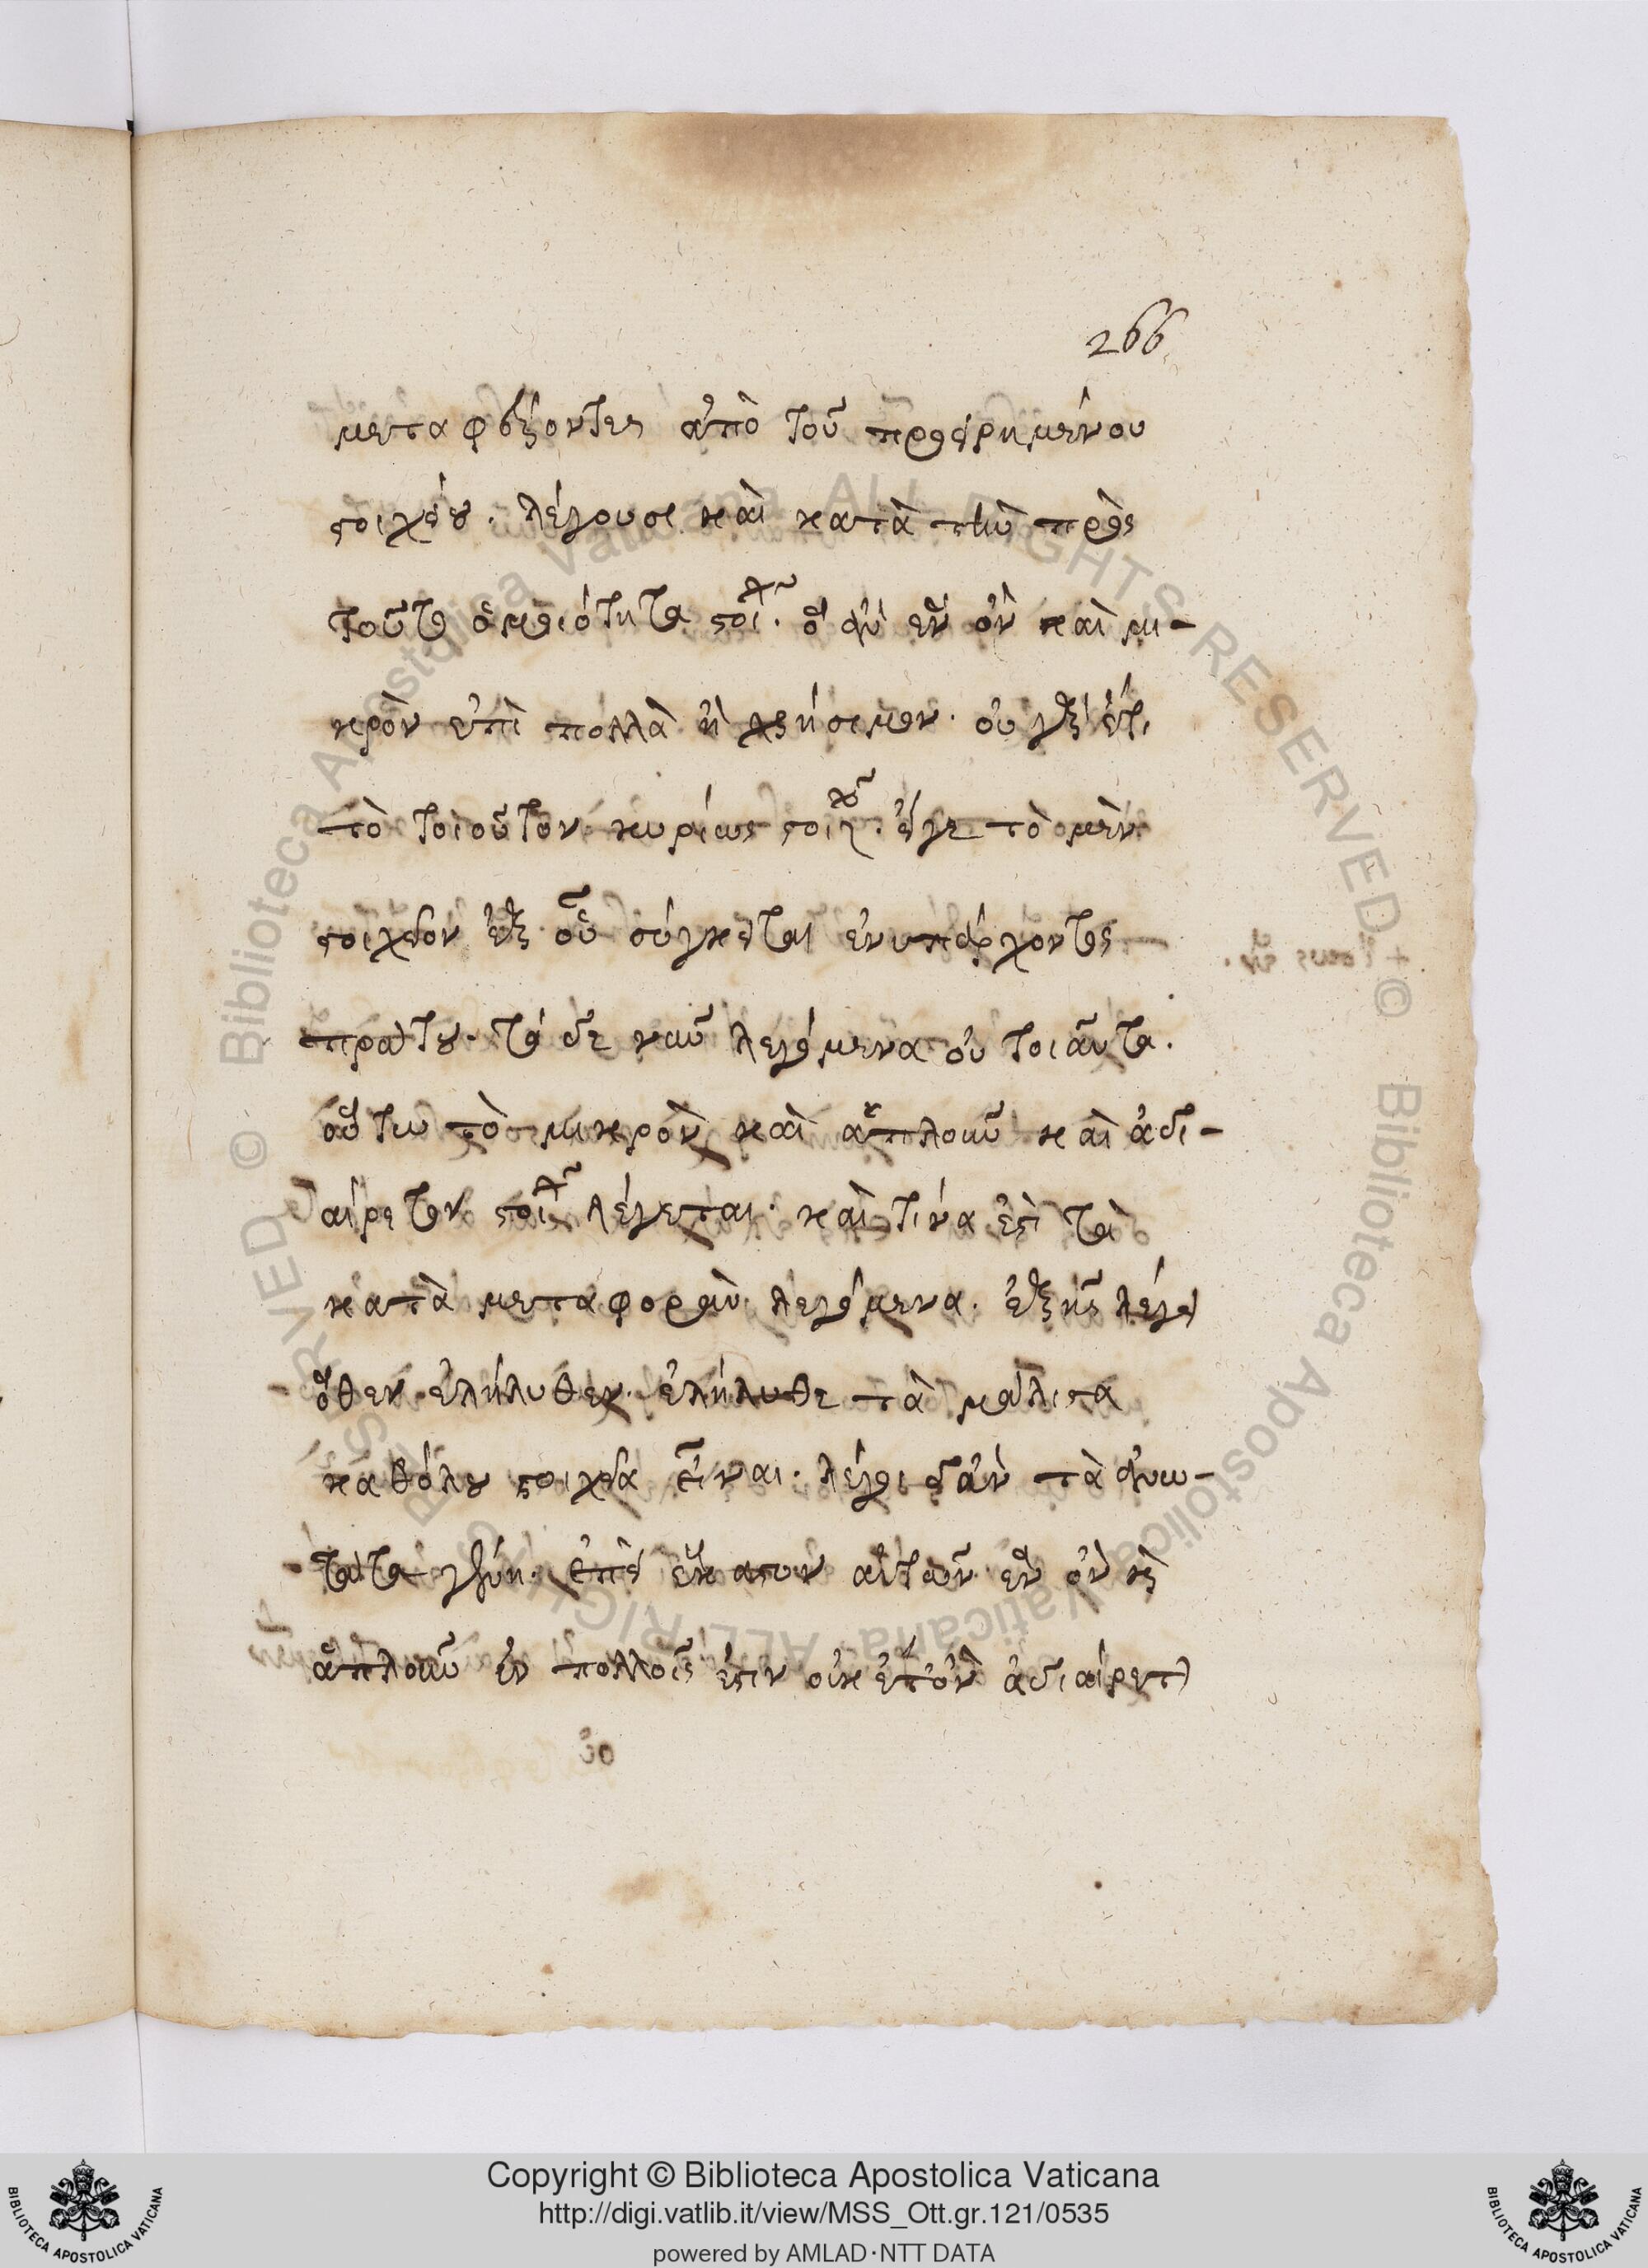 266
μεταφέροντες ἀπὸ τοῦ προειρημένου
στοιχείου. λέγουσι καὶ κατὰ τὴν πρὸς
τοῦτο ὁμοιότητα στοιχεῖον. ὃ ἂν ἓν ὂν καὶ μι-
κρὸν ἐπὶ πολλὰ ᾖ χρήσιμον. οὐ γὰρ ἐστι
τὸ τοιοῦτον κυρίως στοιχεῖον. εἴγε τὸ μὲν
στοιχεῖον ἐξ οὗ σύγκειται ἐνυπάρχοντος
πρώτου. τὰ δὲ νῦν λεγόμενα οὐ τοιαῦτα.
οὕτω τὸ μικρὸν καὶ ἁπλοῦν καὶ ἀδι-
αίρετον στοιχεῖον λέγεται. καὶ τίνα ἐστὶ τὰ
κατὰ μεταφορὰν λεγόμενα. ἑξῆς λέγει
ὅθεν ἐλήλυθεν. ἐλήλυθε τὰ μάλιστα
καθόλου στοιχεῖα εἶναι. λέγοι δ' ἂν τὰ ἀνω-
τάτω γένη. ἐπεὶ ἕκαστον αὐτῶν ἓν ὂν καὶ
ἁπλοῦν ἐν πολλοῖς ἐστιν οὐκ ἐπ ὂν ἀδιαίρετον
Copyright © Biblioteca Apostolica Vaticana
http://digi.vatlib.it/view/MSS_Ott.gr.121/0535
powered by AMLAD·NTT DATA
BIBLIOTECA APOSTOLICA VATICANA
BIBLIOTECA APOSTOLICA VATICANA
© Biblioteca Apostolica Vaticana ALL RIGHTS RESERVED
© Biblioteca Apostolica Vaticana ALL RIGHTS RESERVED